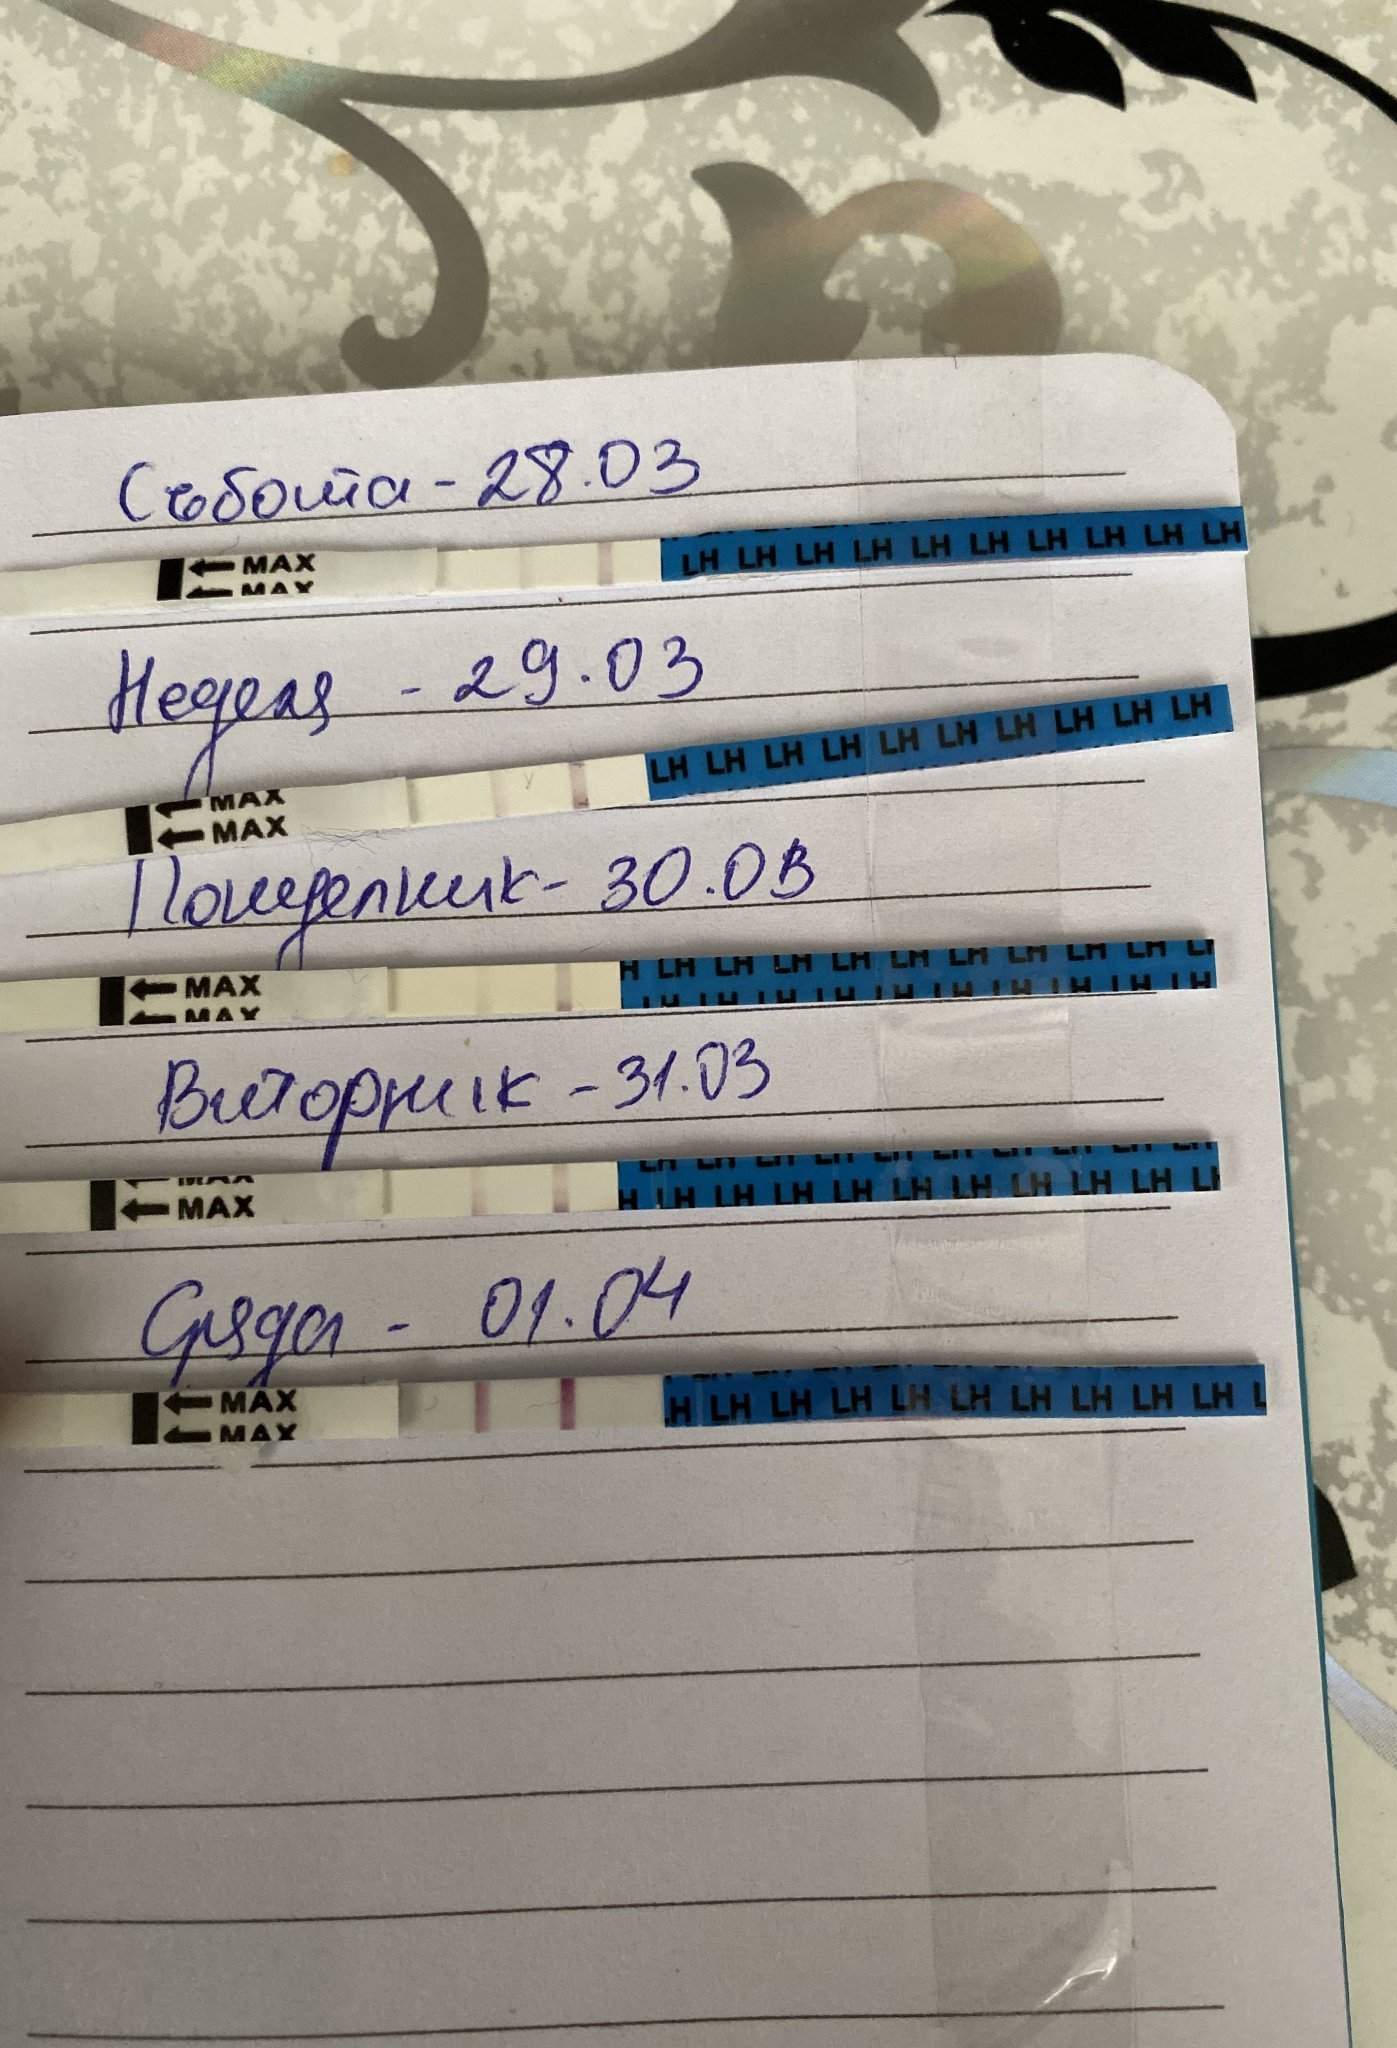 Събота - 28.03
MAX LH LH LH LH LH LH LH LH LH LH
MAX
Неделя - 29.03
LH LH LH LH LH LH LH LH LH LH
MAX
MAX
Понеделник - 30.03
MAX H LH LH LH LH LH LH LH LH LH
MAX LH LH LH LH LH LH LH LH LH
Вторник - 31.03
MAX LH LH LH LH LH LH LH LH LH LH
MAX H LH LH LH LH LH LH LH LH LH
Сряда - 01.04
MAX H LH LH LH LH LH LH LH LH LH
MAX